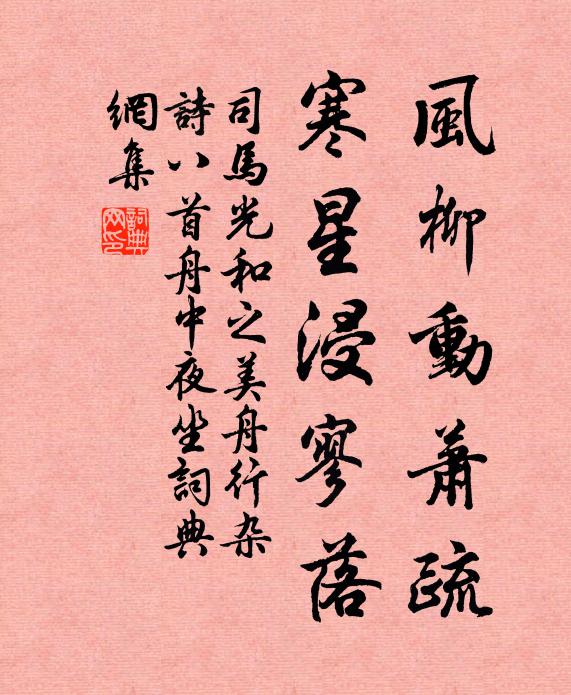 風柳動蕭疏
寒星浸寥落
司馬光和之美舟行杂
詩八首舟中夜坐詞典
網集
詞典
网印